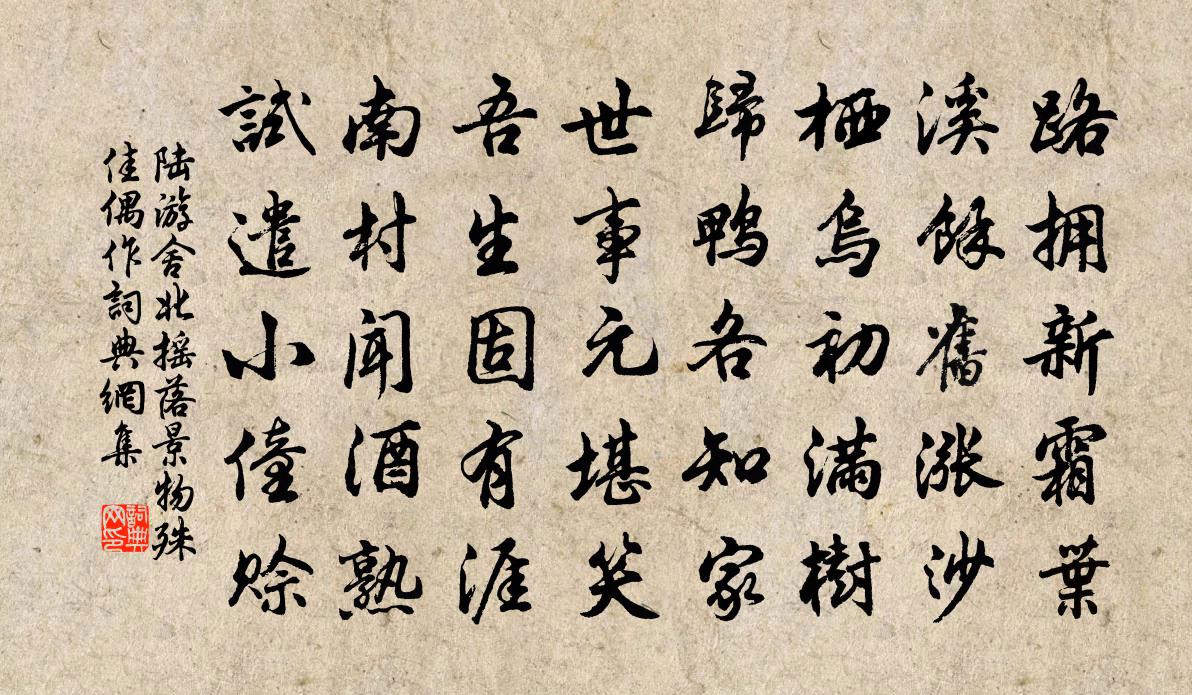 路擁新霜葉
溪餘舊漲沙
栖烏初滿樹
歸鴨各知家
世事元堪笑
吾生固有涯
南村聞酒熟
試遣小僮賒
陆游舍北摇落景物殊
佳偶作詞典網集
詞典网印